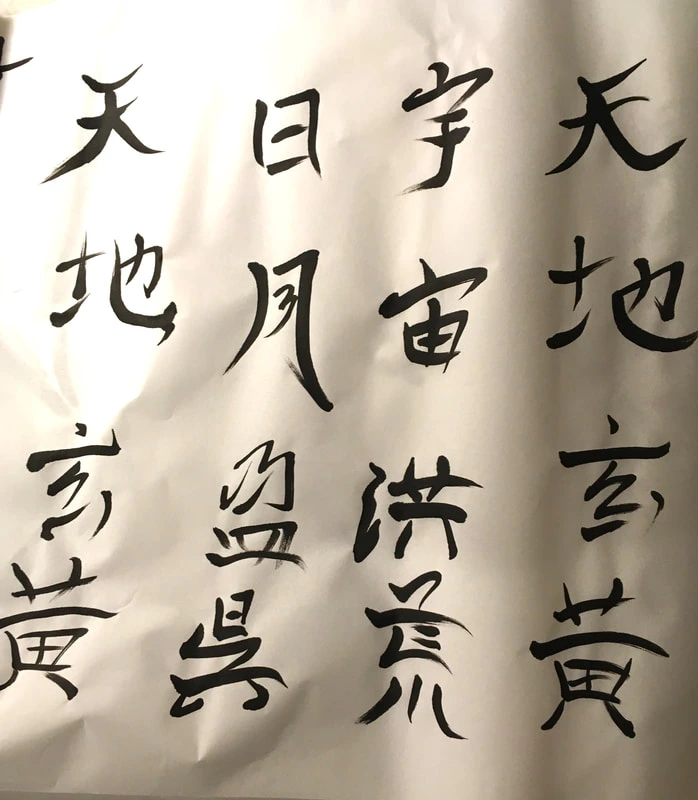 天地玄黄
宇宙洪荒
日月盈昃
天地玄黄